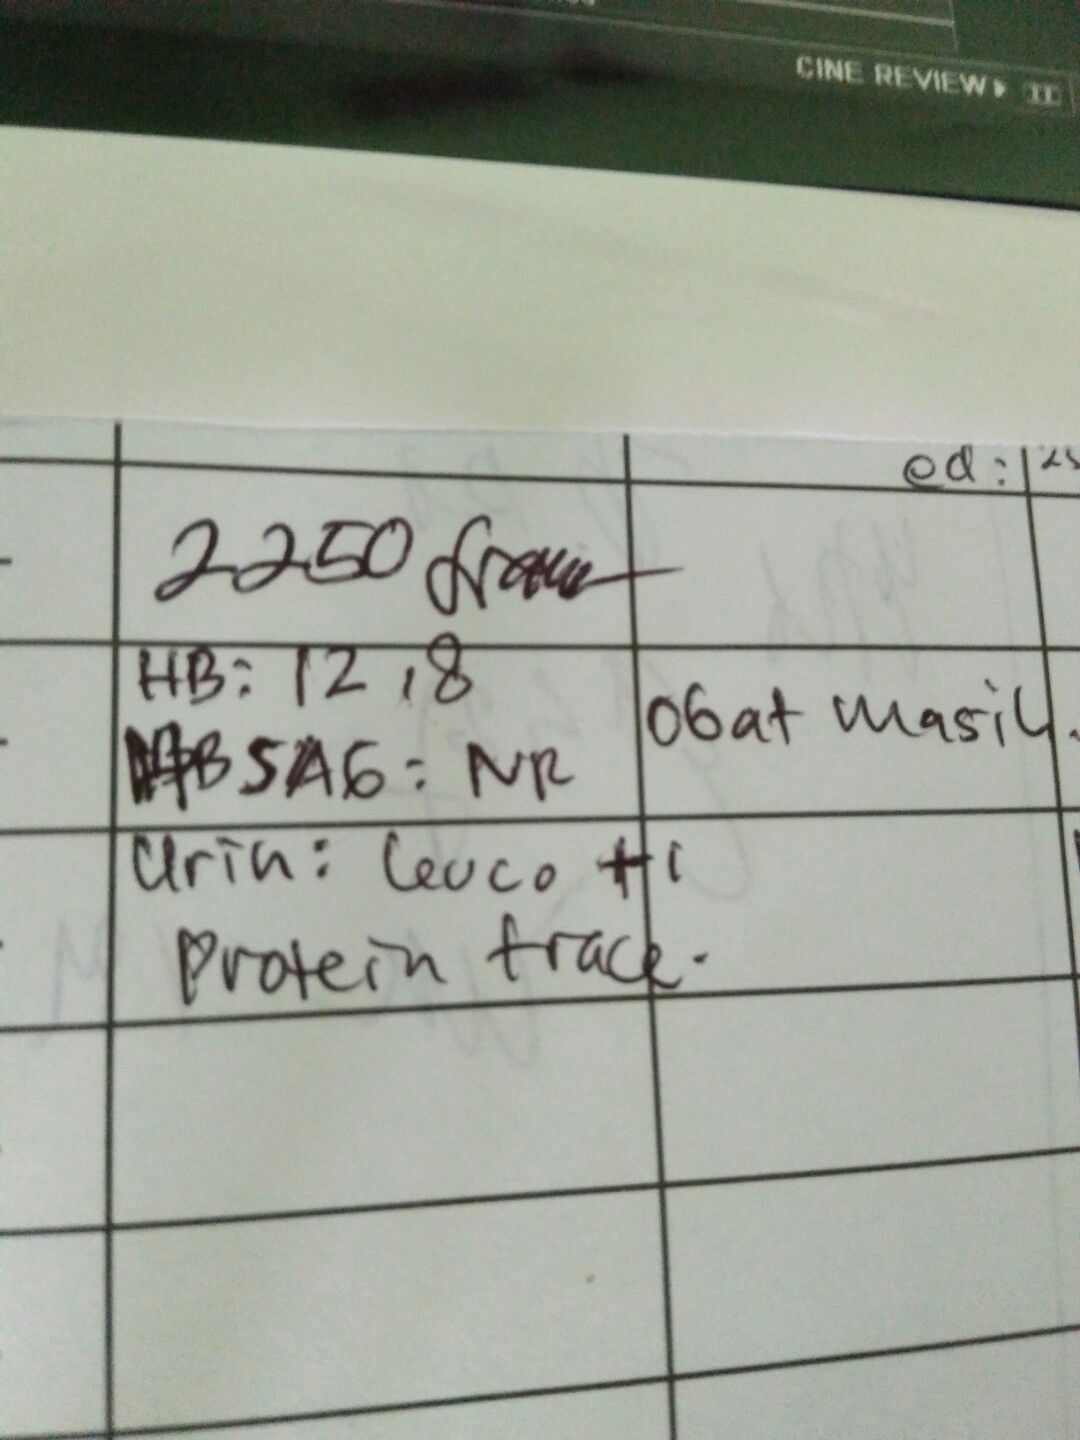 CINE REVIEW
ed:
2250 gram
HB: 12,8
HBSAG: NR
Obat masih
Urin: Leuco +1
Protein trace.